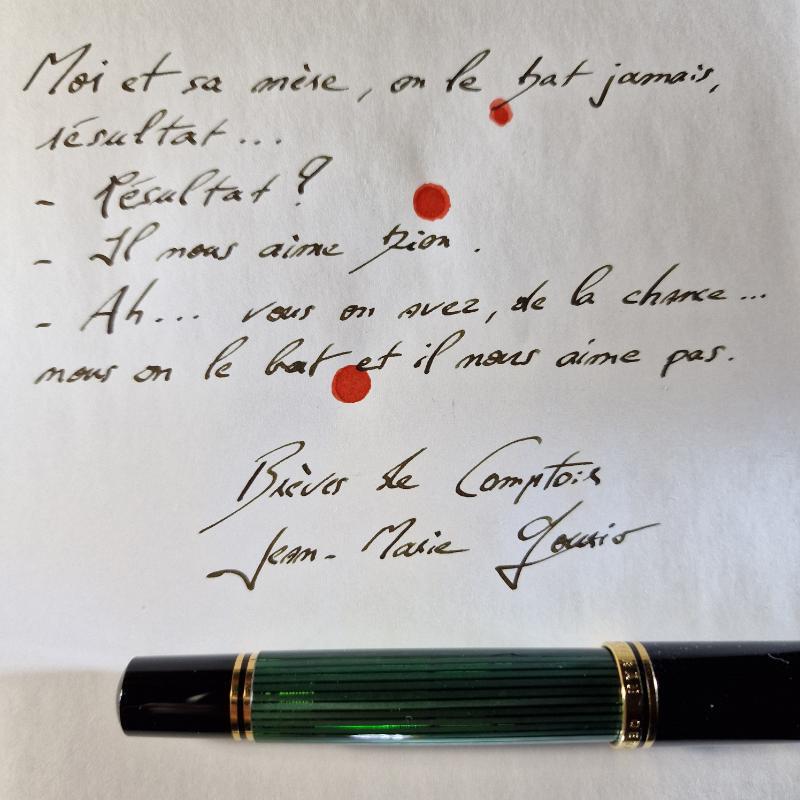 Moi et sa mère, on le bat jamais,
résultat...
- Résultat ?
- Il nous aime bien.
- Ah... vous en avez, de la chance...
nous on le bat et il nous aime pas.
Brèves de Comptoir
Jean-Marie Gourio